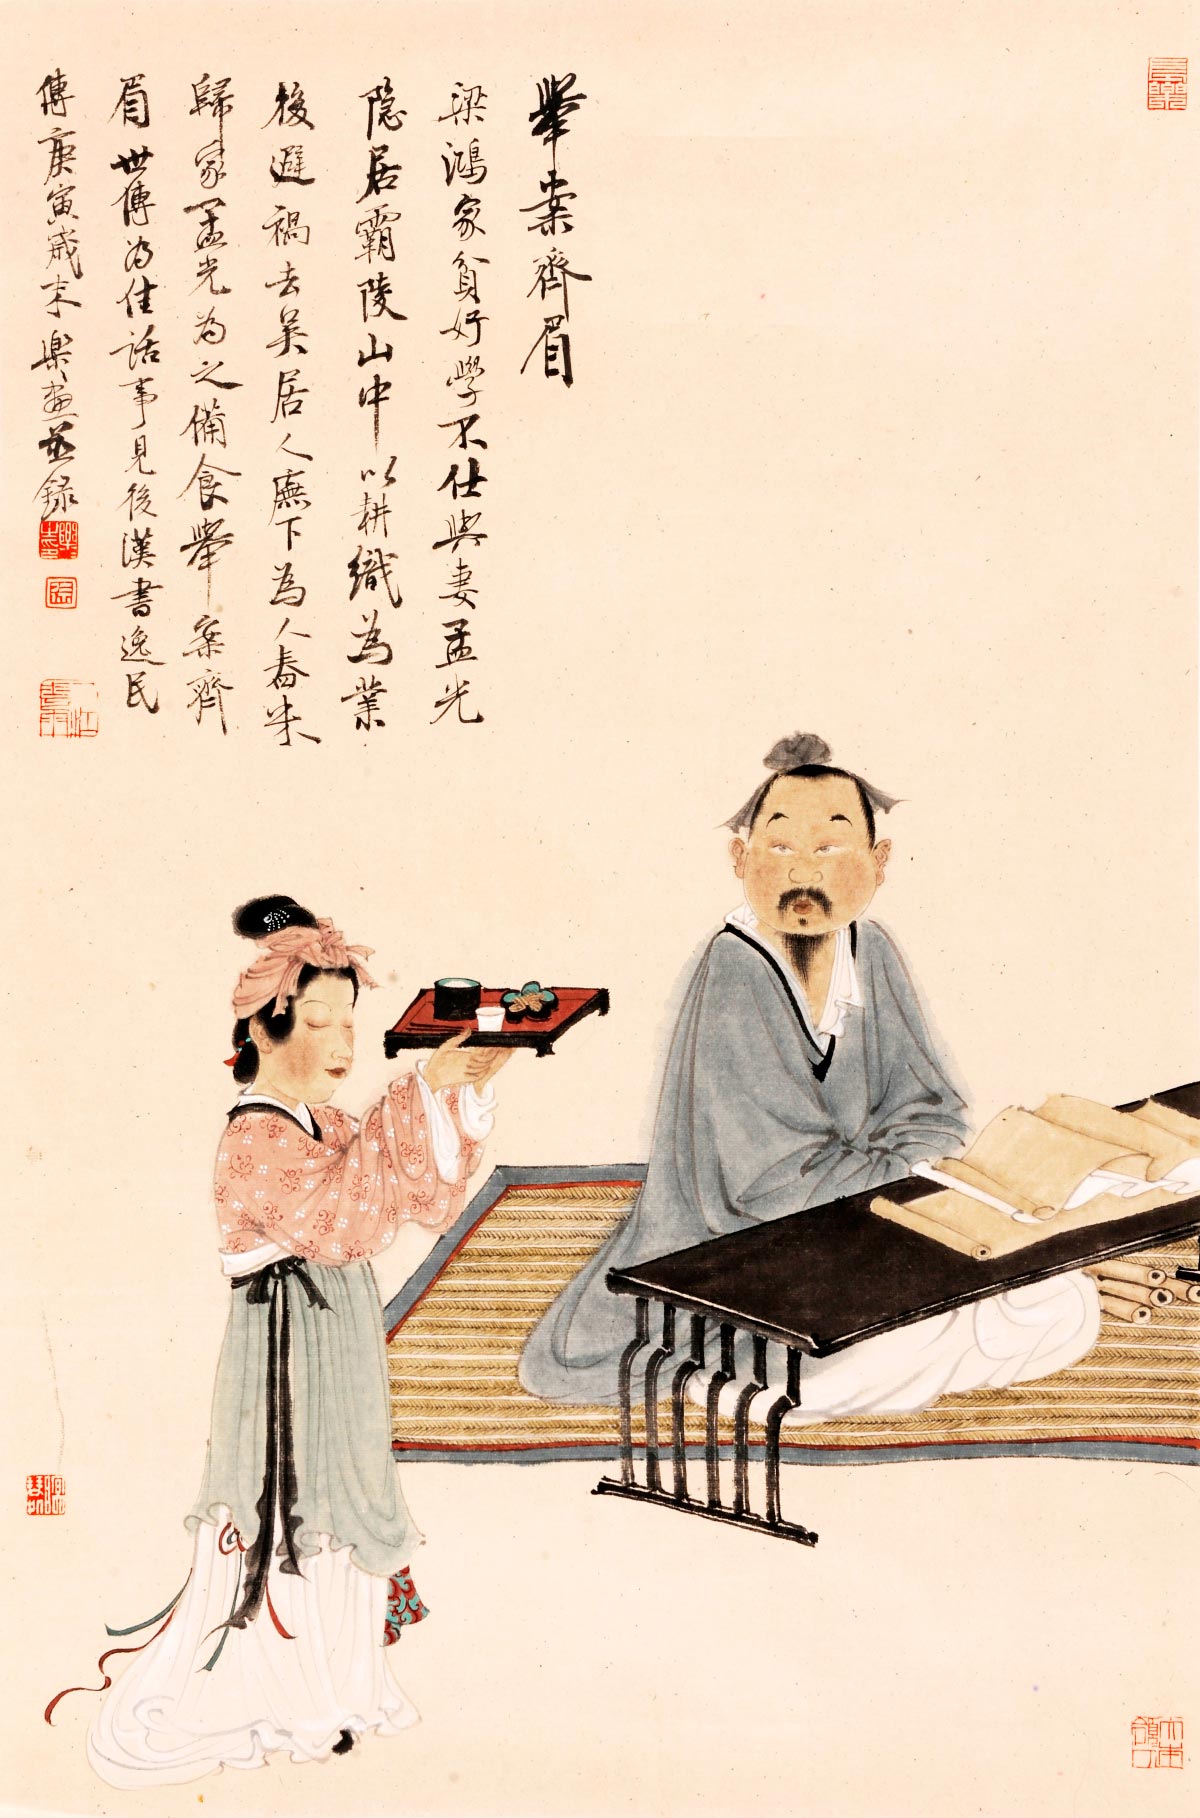 舉案齊眉
梁鴻家貧好學不仕與妻孟光
隐居霸陵山中以耕織為業
後避禍去吴居人廡下為人舂米
歸家孟光為之備食舉案齊
眉世傳为佳話事見後漢書逸民
傳庚寅歲末樂畫並録